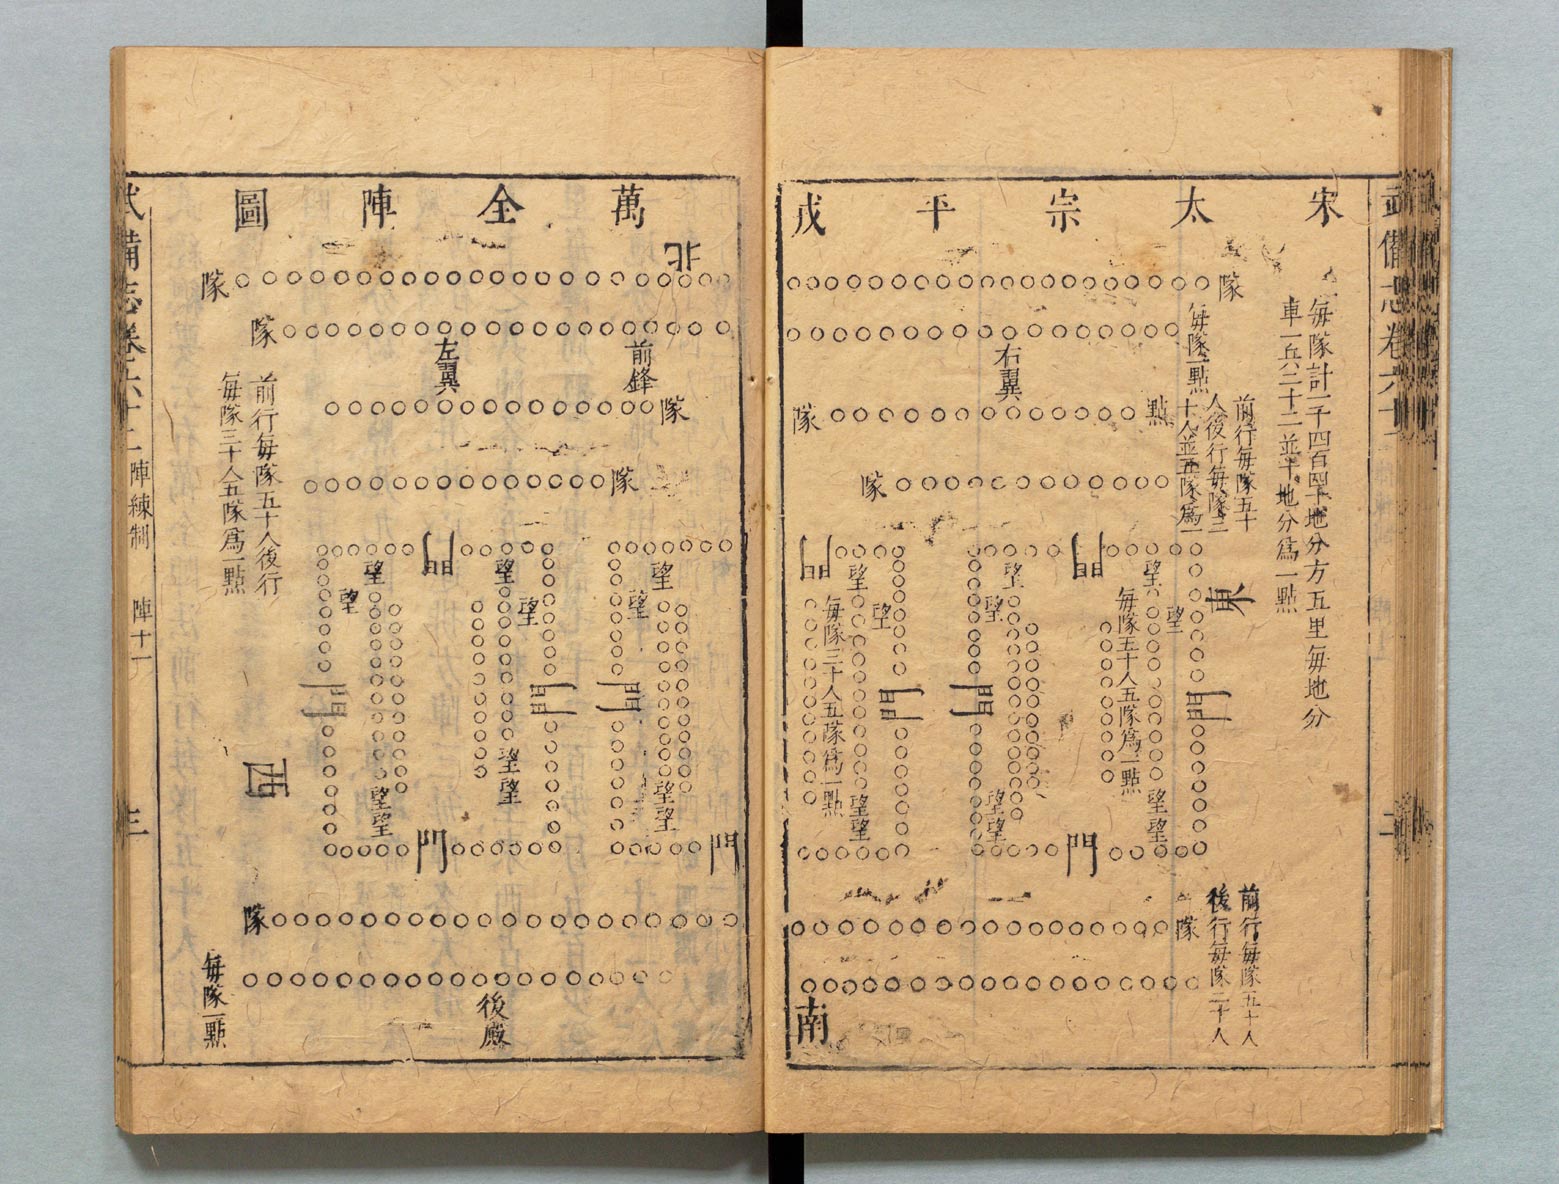 宋太宗平戎
每隊計一千四百四十地分方五里每地分
車一兵二十二並十地分為一點
隊
東
每隊一點
前行每隊五十
人後行每隊三
十人並五隊為一
點
右翼
隊
隊
望
望
望
望
望
望
望
望
望
望
望
望
每隊五十人五隊為一點
每隊三十人五隊為一點
門
門
門
門
門
門
隊
前行每隊五十人
後行每隊三十人
南
萬全陣圖
北
隊
隊
前鋒
左翼
隊
隊
望
望
望
望
望
望
望
望
望
望
望
望
門
門
門
門
門
門
前行每隊五十人後行
每隊三十人五隊為一點
西
隊
每隊一點
後殿
武備志卷六十二
陣練制
陣十一
三